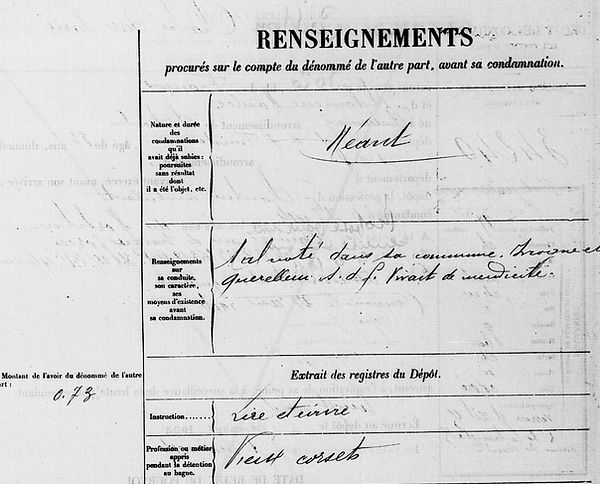 RENSEIGNEMENTS
procurés sur le compte du dénommé de l'autre part, avant sa condamnation.
Nature et durée
des
condamnations
qu'il
avait déjà subies :
poursuites
sans résultat
dont
il a été l'objet, etc.
Néant
Renseignements
sur
sa conduite,
son caractère,
ses
moyens d'existence
avant
sa condamnation.
Mal noté dans sa commune. Ivrogne et
querelleur. S. d. f. Vivait de mendicité.
Montant de l'avoir du dénommé de l'autre
part :
0.73
Extrait des registres du Dépôt.
Instruction......
Lire et écrire
Profession ou métier
appris
pendant la détention
au bagne.
Vieux corsets